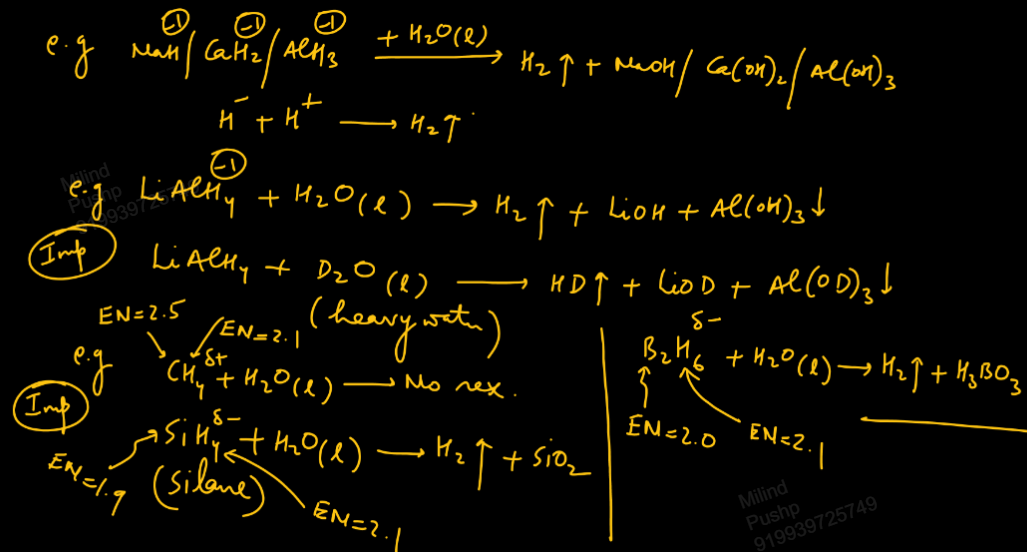 e.g NaH/ CaH₂/ AlH₃ + H₂O(l) → H₂↑ + NaOH/ Ca(OH)₂/ Al(OH)₃
-1 -1 -1
H⁻ + H⁺ → H₂↑
-1
e.g LiAlH₄ + H₂O(l) → H₂↑ + LiOH + Al(OH)₃↓
Imp
LiAlH₄ + D₂O(l) → HD↑ + LiOD + Al(OD)₃↓
(heavy water)
EN=2.5
EN=2.1
e.g CH₄ δ+ + H₂O(l) → No rex.
Imp
SiH₄ δ- + H₂O(l) → H₂↑ + SiO₂
EN=1.9
(Silane)
EN=2.1
δ-
B₂H₆ + H₂O(l) → H₂↑ + H₃BO₃
EN=2.0
EN=2.1
Milind
Pushp
919939725749
Milind
Pushp
919939725749